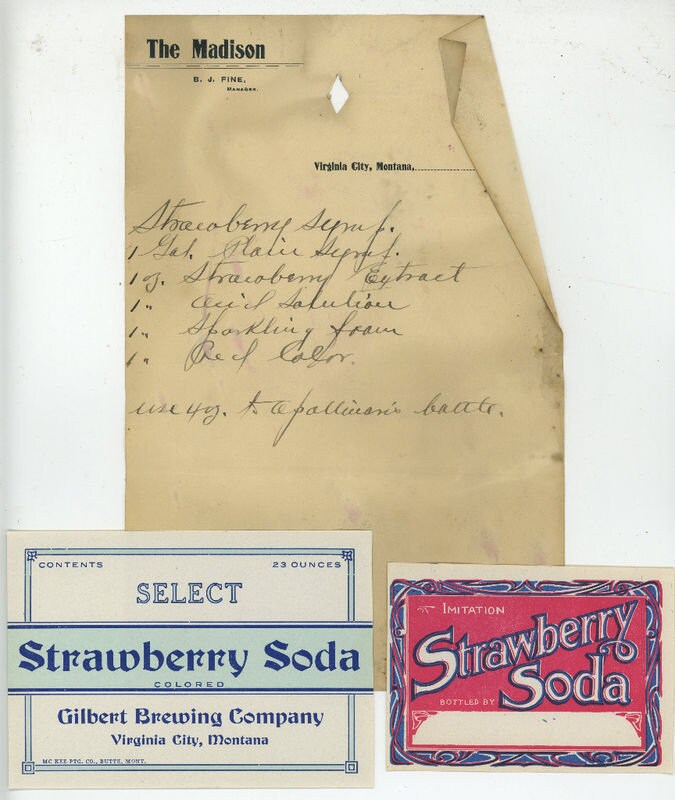 The Madison
B. J. FINE,
MANAGER.
Virginia City, Montana,
Strawberry Syrup.
1 Gal. Plain Syrup.
1 oz. Strawberry Extract
1 " Acid Solution
1 " Sparkling foam
1 " Red Color.
use 4 oz. to Apollinaris bottle.
CONTENTS 23 OUNCES
SELECT
Strawberry Soda
COLORED
Gilbert Brewing Company
Virginia City, Montana
MC KEE PTG. CO., BUTTE, MONT.
IMITATION
Strawberry
Soda
BOTTLED BY